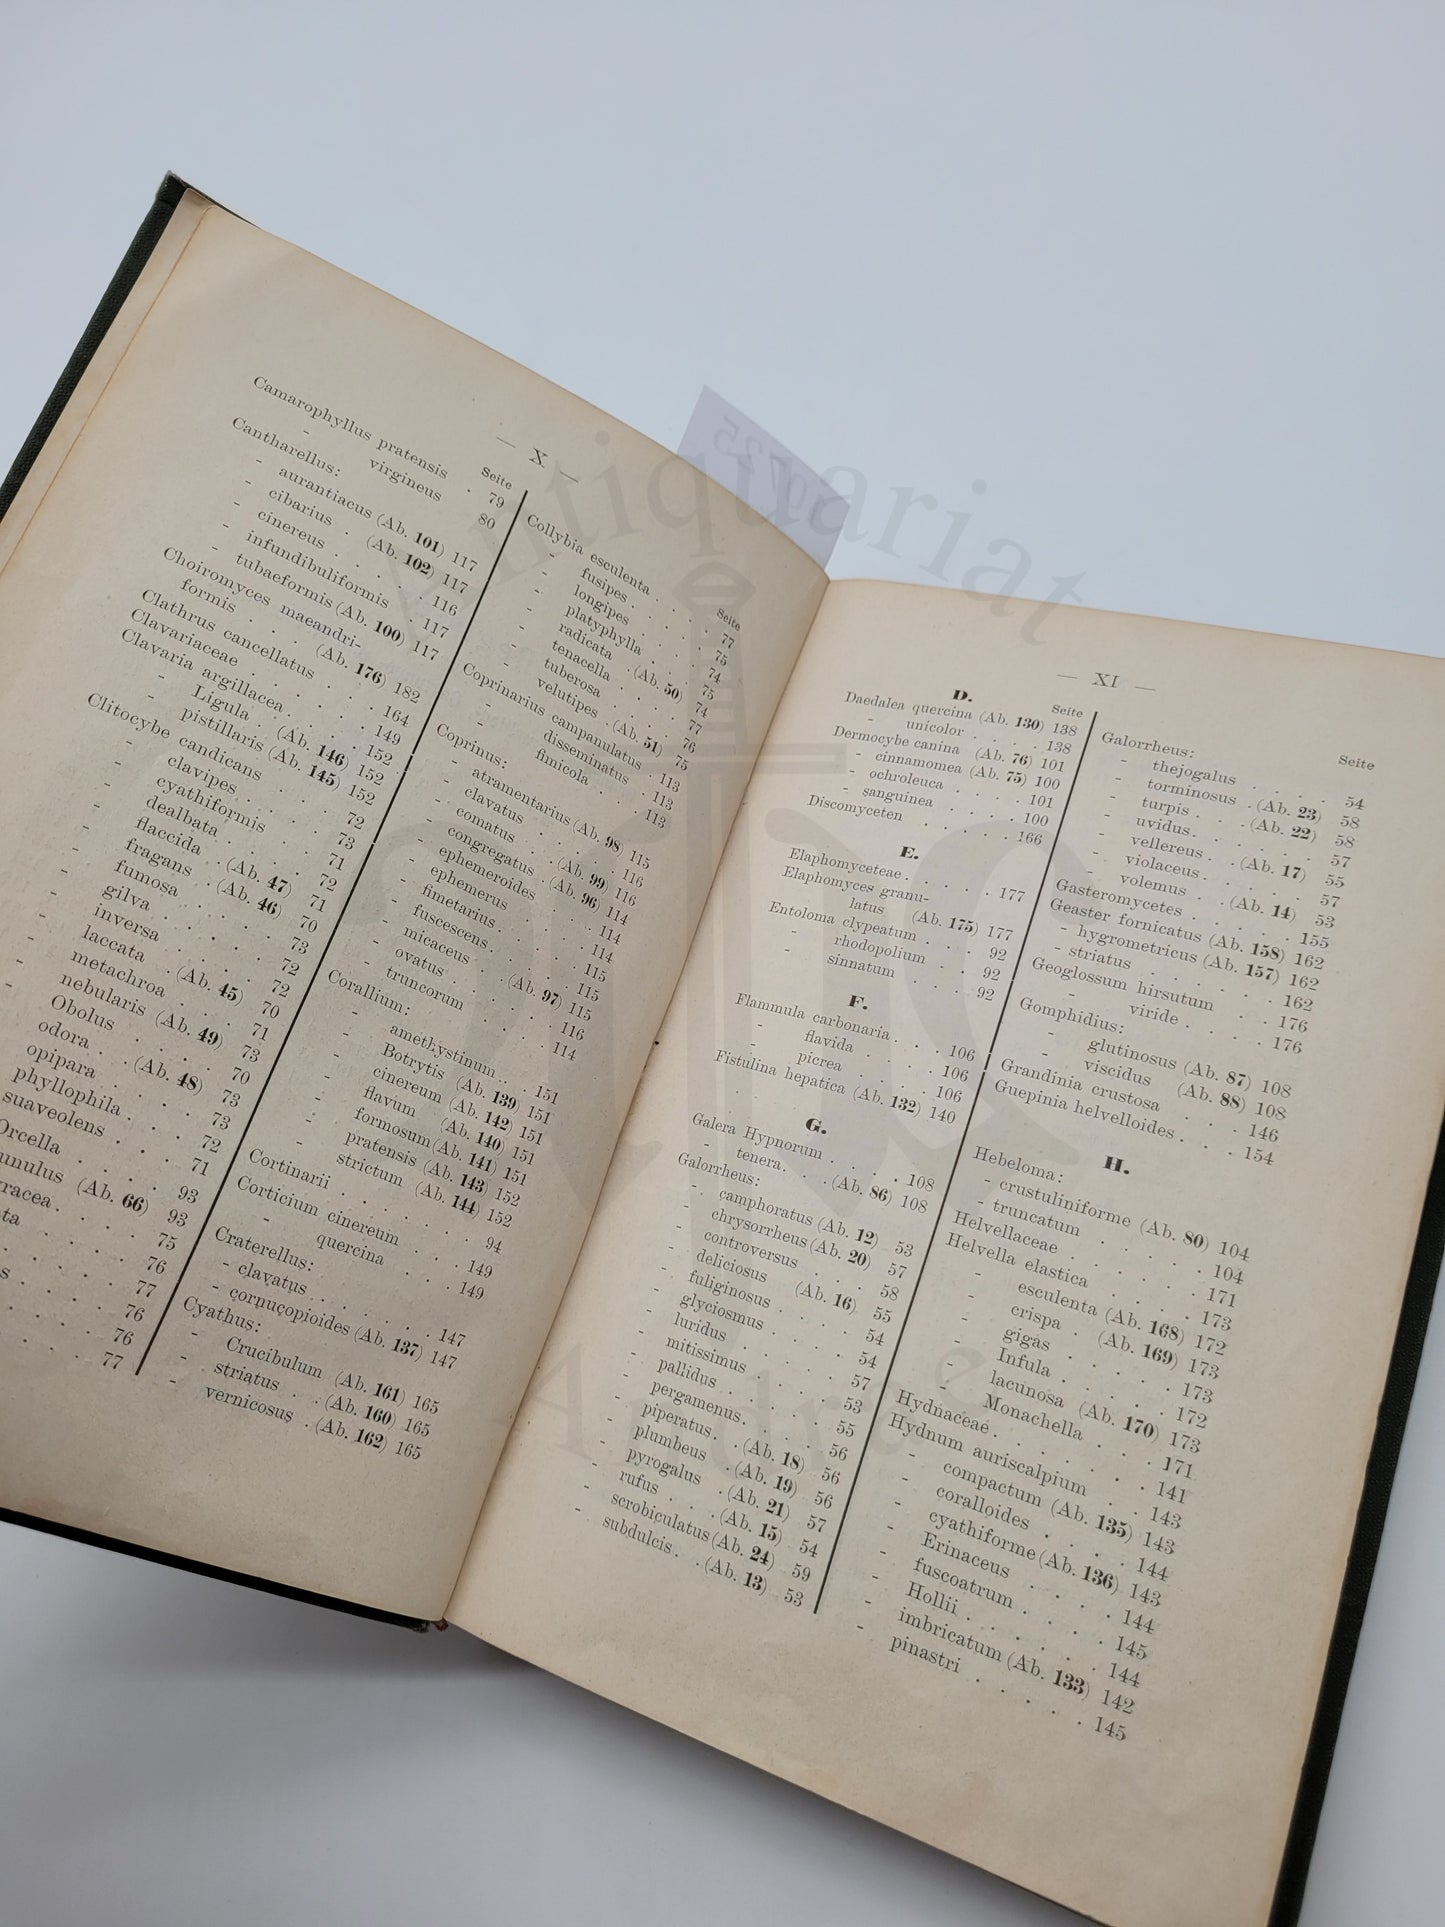 — X —
Seite
Camarophyllus pratensis . 79
- virgineus 80
Cantharellus:
- aurantiacus (Ab. 101) 117
- cibarius . (Ab. 102) 117
- cinereus . . . . . 116
- infundibuliformis . 117
- tubaeformis (Ab. 100) 117
Choiromyces maeandri-
formis . . . (Ab. 176) 182
Clathrus cancellatus . . 164
Clavariaceae . . . . . 149
Clavaria argillacea . . . 152
- Ligula . (Ab. 146) 152
- pistillaris (Ab. 145) 152
Clitocybe candicans . . 72
- clavipes . . . . 73
- cyathiformis . . 71
- dealbata . . . . 72
- flaccida . (Ab. 47) 71
- fragans . (Ab. 46) 70
- fumosa . . . . . 73
- gilva . . . . . . 72
- inversa . . . . . 72
- laccata . (Ab. 45) 70
- metachroa . . . 71
- nebularis (Ab. 49) 73
- Obolus . . . . . 70
odora . . (Ab. 48) 73
opipara . . . . . 73
phyllophila . . . 72
suaveolens . . . 71
Orcella . . . . . 93
(Ab. 66) 93
75
76
77
76
76
77
Seite
Collybia esculenta . . . . 77
- fusipes . . . . . 75
- longipes . . . . . 74
- platyphylla . . . . 75
- radicata . (Ab. 50) 74
- tenacella . . . . . 77
- tuberosa . . . . . 76
- velutipes . (Ab. 51) 75
Coprinarius campanulatus . 113
- disseminatus . 113
- fimicola . . . 113
Coprinus:
- atramentarius (Ab. 98) 115
- clavatus . . . . . 116
- comatus . . (Ab. 99) 116
- congregatus . (Ab. 96) 114
- ephemeroides . . . 114
- ephemerus . . . . 114
- fimetarius . . . . 115
- fuscescens . . . . 115
- micaceus . . (Ab. 97) 115
- ovatus . . . . . 116
- truncorum . . . . 114
Corallium:
- amethystinum . . . 151
- Botrytis (Ab. 139) 151
- cinereum (Ab. 142) 151
- flavum (Ab. 140) 151
- formosum (Ab. 141) 151
- pratensis (Ab. 143) 152
- strictum (Ab. 144) 152
Cortinarii . . . . . . 94
Corticium cinereum . . . 149
- quercina . . . 149
Craterellus:
- clavatus . . . . . . 147
- cornucopioides (Ab. 137) 147
Cyathus:
- Crucibulum (Ab. 161) 165
- striatus . . (Ab. 160) 165
- vernicosus . (Ab. 162) 165
— XI —
D.
Seite
Daedalea quercina (Ab. 130) 138
- unicolor . . . . 138
Dermocybe canina (Ab. 76) 101
- cinnamomea (Ab. 75) 100
- ochroleuca . . . . 101
- sanguinea . . . . 100
Discomyceten . . . . . 166
E.
Elaphomyceteae . . . . . 177
Elaphomyces granu-
latus (Ab. 175) 177
Entoloma clypeatum . . . 92
- rhodopolium . . 92
- sinnatum . . . 92
F.
Flammula carbonaria . . . 106
- flavida . . . . 106
- picrea . . . . 106
Fistulina hepatica (Ab. 132) 140
G.
Galera Hypnorum . . . . 108
- tenera . . . (Ab. 86) 108
Galorrheus:
- camphoratus (Ab. 12) 53
- chrysorrheus (Ab. 20) 57
- controversus . . . . 58
- deliciosus (Ab. 16) 55
- fuliginosus . . . . . 54
- glyciosmus . . . . . 54
- luridus . . . . . . 57
- mitissimus . . . . . 53
- pallidus . . . . . . 55
- pergamenus . . . . . 56
- piperatus . . (Ab. 18) 56
- plumbeus . (Ab. 19) 56
- pyrogalus . (Ab. 21) 57
- rufus . . . (Ab. 15) 54
- scrobiculatus (Ab. 24) 59
- subdulcis . . (Ab. 13) 53
Seite
Galorrheus:
- thejogalus . . . . 54
- torminosus . (Ab. 23) 58
- turpis . . . (Ab. 22) 58
- uvidus . . . . . . 57
- vellereus . . (Ab. 17) 55
- violaceus . . . . . 57
- volemus . . (Ab. 14) 53
Gasteromycetes . . . . . 155
Geaster fornicatus (Ab. 158) 162
- hygrometricus (Ab. 157) 162
- striatus . . . . . . 162
Geoglossum hirsutum . . 176
- viride . . . . . 176
Gomphidius:
- glutinosus (Ab. 87) 108
- viscidus (Ab. 88) 108
Grandinia crustosa . . . 146
Guepinia helvelloides . . . 154
H.
Hebeloma:
- crustuliniforme (Ab. 80) 104
- truncatum . . . . . 104
Helvellaceae . . . . . . 171
Helvella elastica . . . . 173
- esculenta (Ab. 168) 172
- crispa . (Ab. 169) 173
- gigas . . . . . . 173
- Infula . . . . . . 172
- lacunosa (Ab. 170) 173
- Monachella . . . . 171
Hydnaceae . . . . . . . 141
Hydnum auriscalpium . . . 143
- compactum (Ab. 135) 143
- coralloides . . . . 144
- cyathiforme (Ab. 136) 143
- Erinaceus . . . . . 144
- fuscoatrum . . . . 145
- Hollii . . . . . . 144
- imbricatum (Ab. 133) 142
- pinastri . . . . . 145
Antiquariat